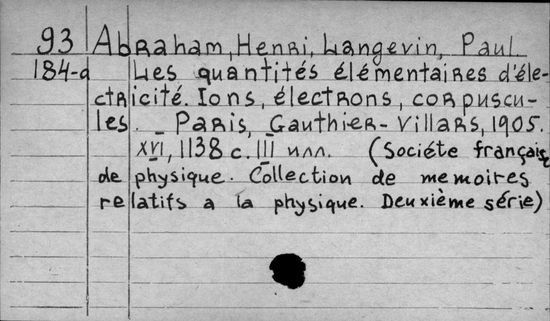 93 Abraham, Henri, Langevin, Paul
184-a Les quantités élémentaires d'éle-
ctricité. Ions, électrons, corpuscu-
les. _ Paris, Gauthier-Villars, 1905.
XVI, 1138 c. III илл. (Sociéte française
de physique. Collection de memoires
relatifs a la physique. Deuxième série)